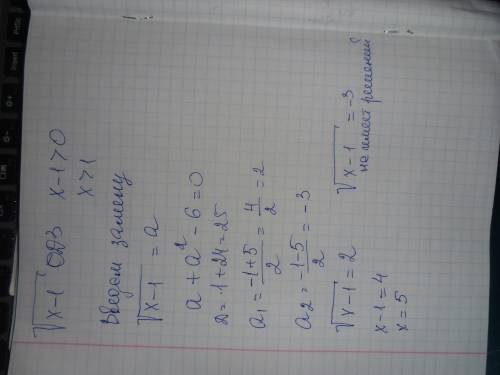 √x-1 ОДЗ x-1>0
x>1
Введём замену
√x-1 = a
a + a² - 6 = 0
D = 1 + 24 = 25
a₁ = (-1+5)/2 = 4/2 = 2
a₂ = (-1-5)/2 = -3
√x-1 = 2 √x-1 = -3
x-1 = 4 не имеет решений
x = 5